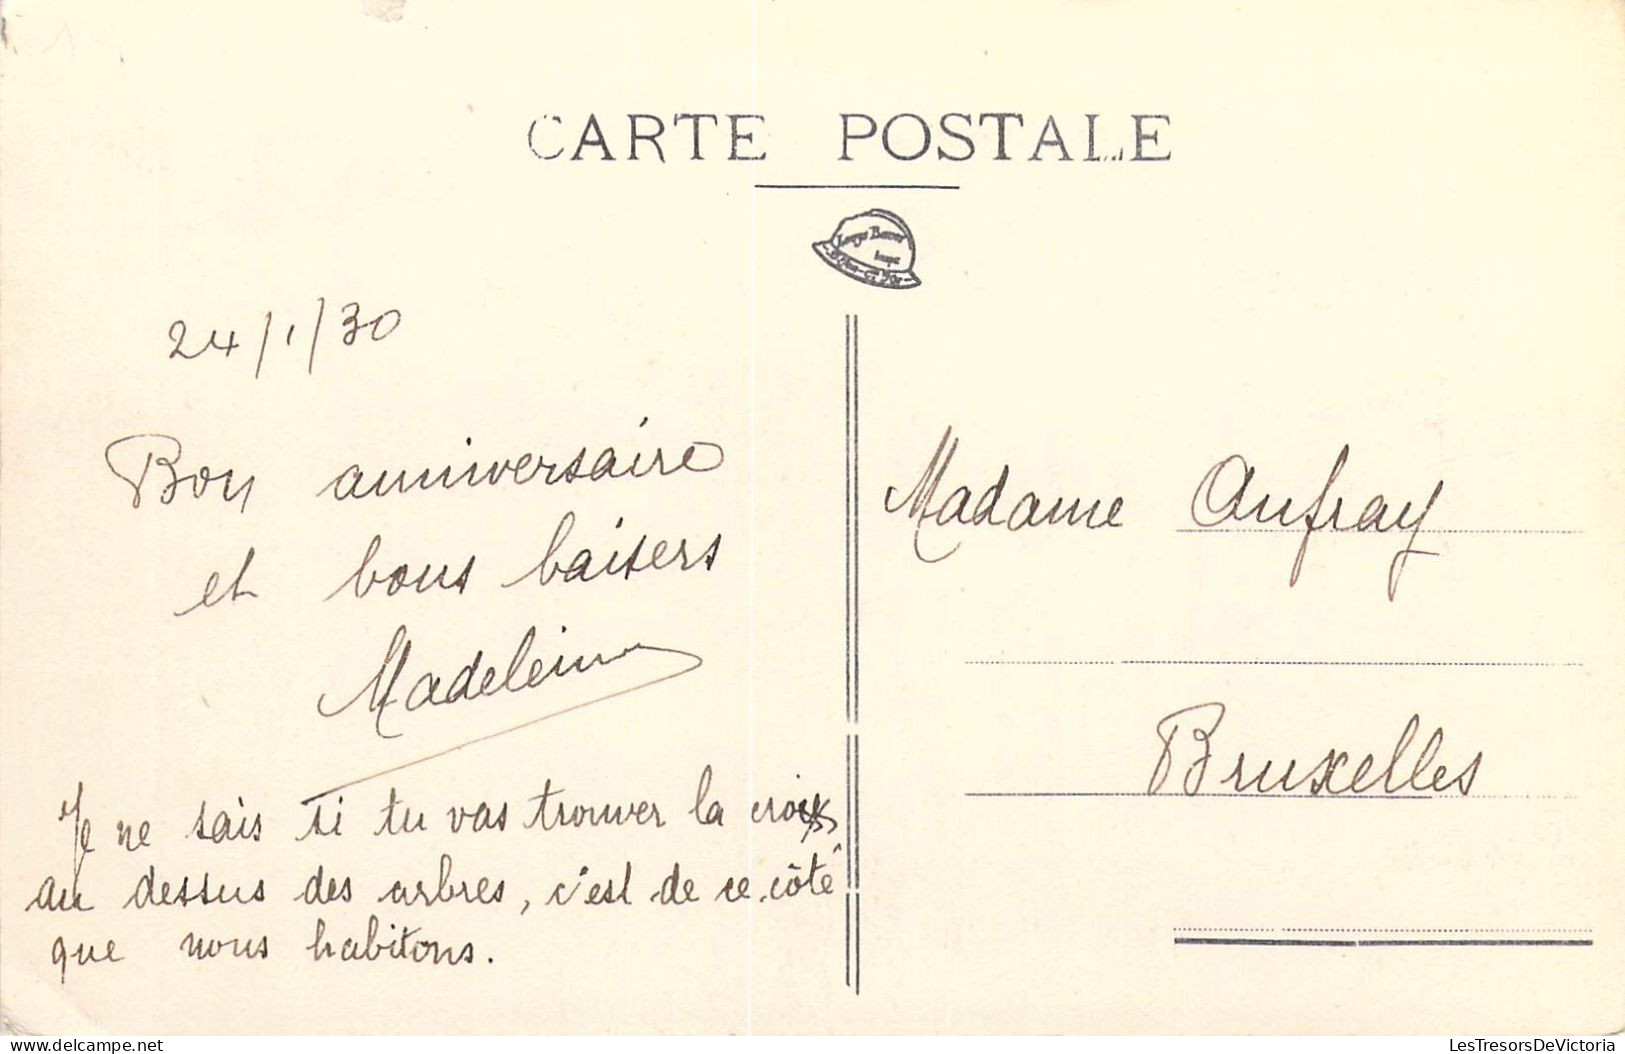 CARTE POSTALE
24/1/30
Bon anniversaire
et bons baisers
Madeleine
Je ne sais si tu vas trouver la croix
au dessus des arbres, c'est de ce côté
que nous habitons.
Madame Aufray
Bruxelles
LesTresorsDeVictoria